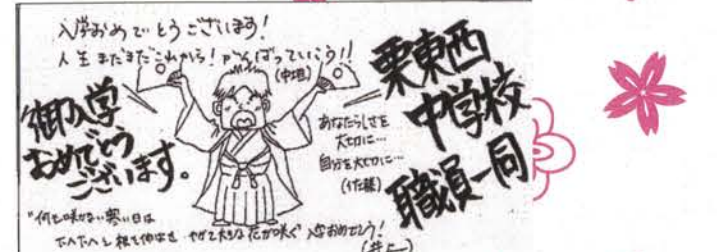 入学おめでとうございます!
人生まだまだこれから!がんばっていこう!!
御入学
おめでとう
ございます。
栗東西
中学校
職員一同
あなたらしさを
大切に…
自分を大切に…
(佐藤)
"何も咲かない寒い日は
下へ下へと根を伸ばせ やがて大きな花が咲く 入学おめでとう!